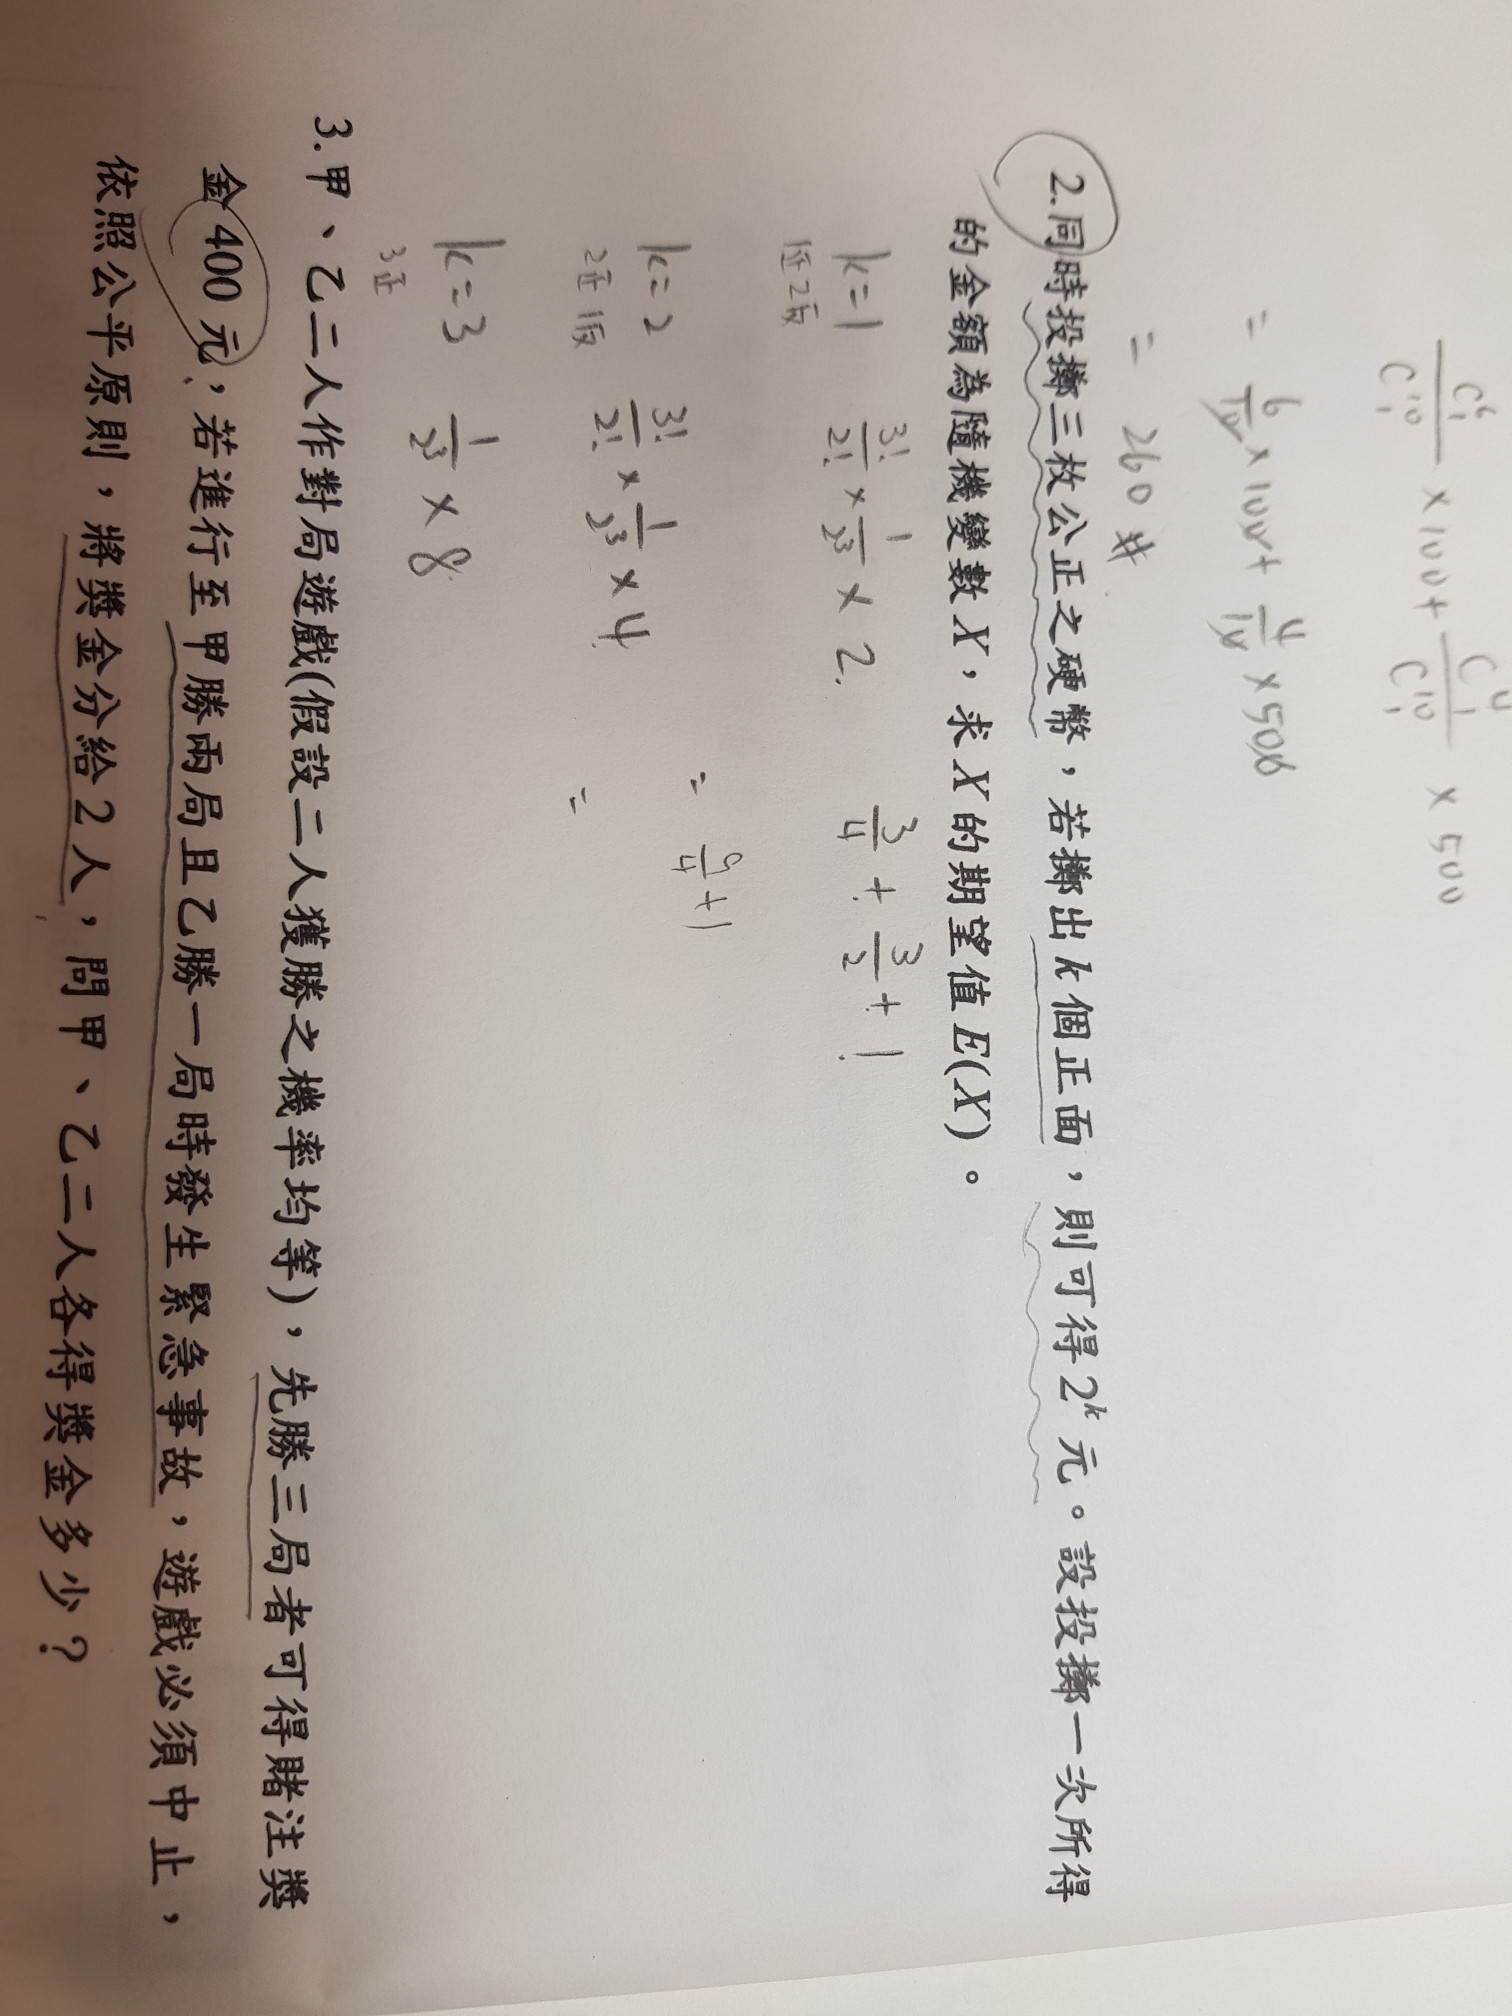 C⁶₁/C¹⁰₁ × 100 + C⁴₁/C¹⁰₁ × 500
= 6/10 × 100 + 4/10 × 500
= 260 #
2. 同時投擲三枚公正之硬幣，若擲出 k 個正面，則可得 2ᵏ 元。設投擲一次所得
的金額為隨機變數 X，求 X 的期望值 E(X)。
k=1 3!/2! × 1/2³ × 2.
1正2反
3/4 + 3/2 + 1
k=2 3!/2! × 1/2³ × 4
2正1反
= 9/4 + 1
=
k=3 1/2³ × 8
3正
3. 甲、乙二人作對局遊戲(假設二人獲勝之機率均等)，先勝三局者可得賭注獎
金 400 元，若進行至甲勝兩局且乙勝一局時發生緊急事故，遊戲必須中止，
依照公平原則，將獎金分給 2 人，問甲、乙二人各得獎金多少？